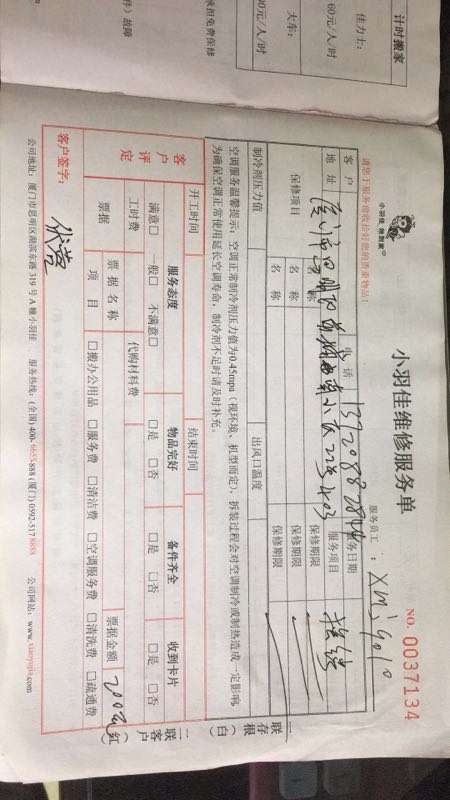 计时搬家
佳力士：
60元/人/时
大车：
00元/人/时
承担免费保修
件）故障
小羽佳 熊到家
小羽佳维修服务单
NO. 0037134
请您于服务前收拾好您的贵重物品！
服务员工：
客户
电话
服务日期
地址
服务项目
保修项目
名称
保修期限
名称
保修期限
名称
保修期限
制冷剂压力值
出风口温度
空调服务温馨提示：空调正常制冷剂压力值为0.45mpa（视环境、机型而定），拆装过程会对空调制冷或制热造成一定影响，
为确保空调正常使用延长空调寿命，制冷剂不足时请及时补充。
开工时间
结束时间
客户评定
服务态度
物品完好
备件齐全
收到卡片
满意□ 一般□ 不满意□
□是 □否
□是 □否
□是 □否
工时费
代购材料费
票据
票据名称
票据金额
200元
项目
□搬办公用品 □服务费 □清洁费 □空调服务费 □清洗费 □疏通费
客户签字：
一存根（白）
二联客户（红）
公司地址：厦门市思明区湖滨东路319号A幢小羽佳 服务热线：(全国) 400-6655-888 (厦门) 0592-5178888 公司网站：www.xiaoyujia.com